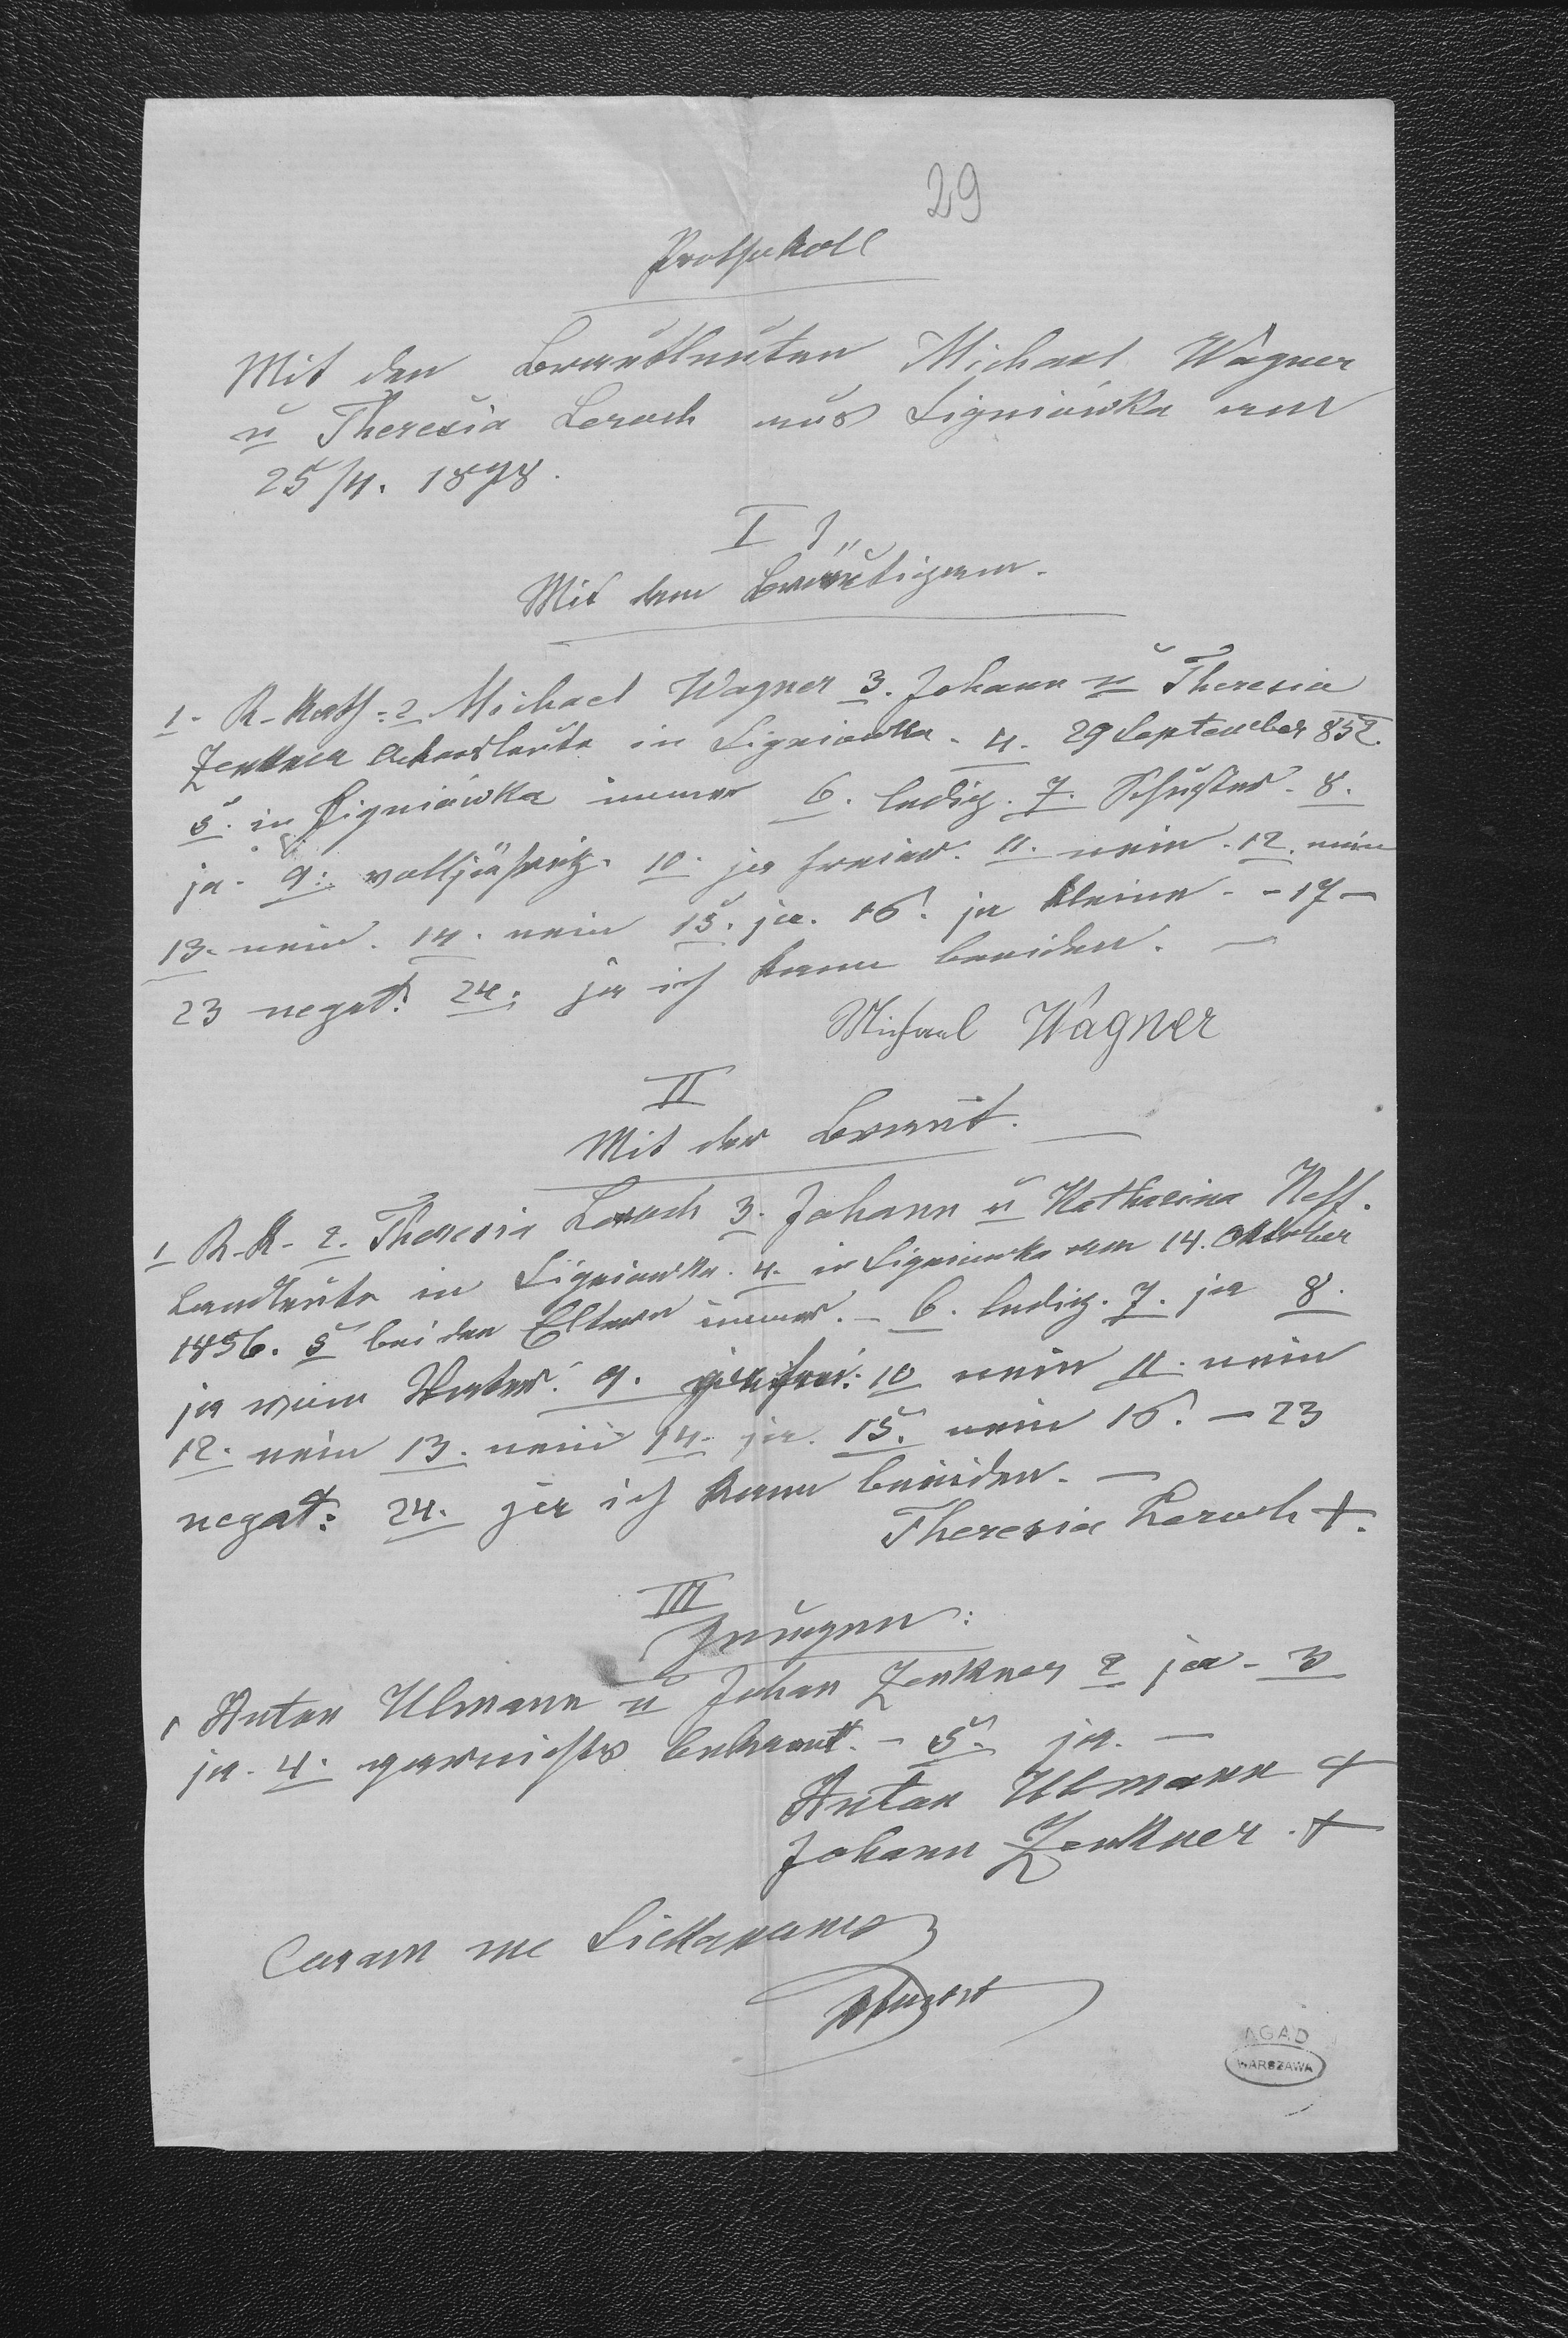 29
Prothokoll
Mit den Brautleuten Michael Wagner
u Theresia Lerach aus Ligniówka am
25/4. 1878.
I
Mit dem Bräutigam.
1. R. Kath: 2 Michael Wagner 3. Johann u Theresia
Zenkner Ackersleute in Ligniówka. 4. 29 September 852.
5. in Ligniówka immer 6. ledig. 7. Schuster. 8.
ja. 9. volljährig. 10. ja freier. 11. nein. 12. nein
13. nein. 14. nein 15. ja. 16. ja kleine - - 17 -
23 negat: 24. ja ich kann beeiden. -
Michael Wagner
II
Mit der Braut.
1 R. K. 2. Theresia Lerach 3. Johann u Katharina Neff.
Landleute in Ligniówka. 4. in Ligniowka am 14. Oktober
1856. 5 bei den Eltern immer. - 6. ledig. 7. ja 8.
ja mein Vater. 9. frei: 10 nein 11. nein
12. nein 13. nein 14. ja. 15. nein 16. - 23
negat: 24. ja ich kann beeiden. -
Theresia Lerach +.
III
Zeugen:
1 Anton Ulmann u Johan Zenkner 2 ja - 3
ja. 4. garnichts bekannt. - 5. ja. -
Anton Ulmann +
Johann Zenkner. +
Coram me
AGAD
WARSZAWA